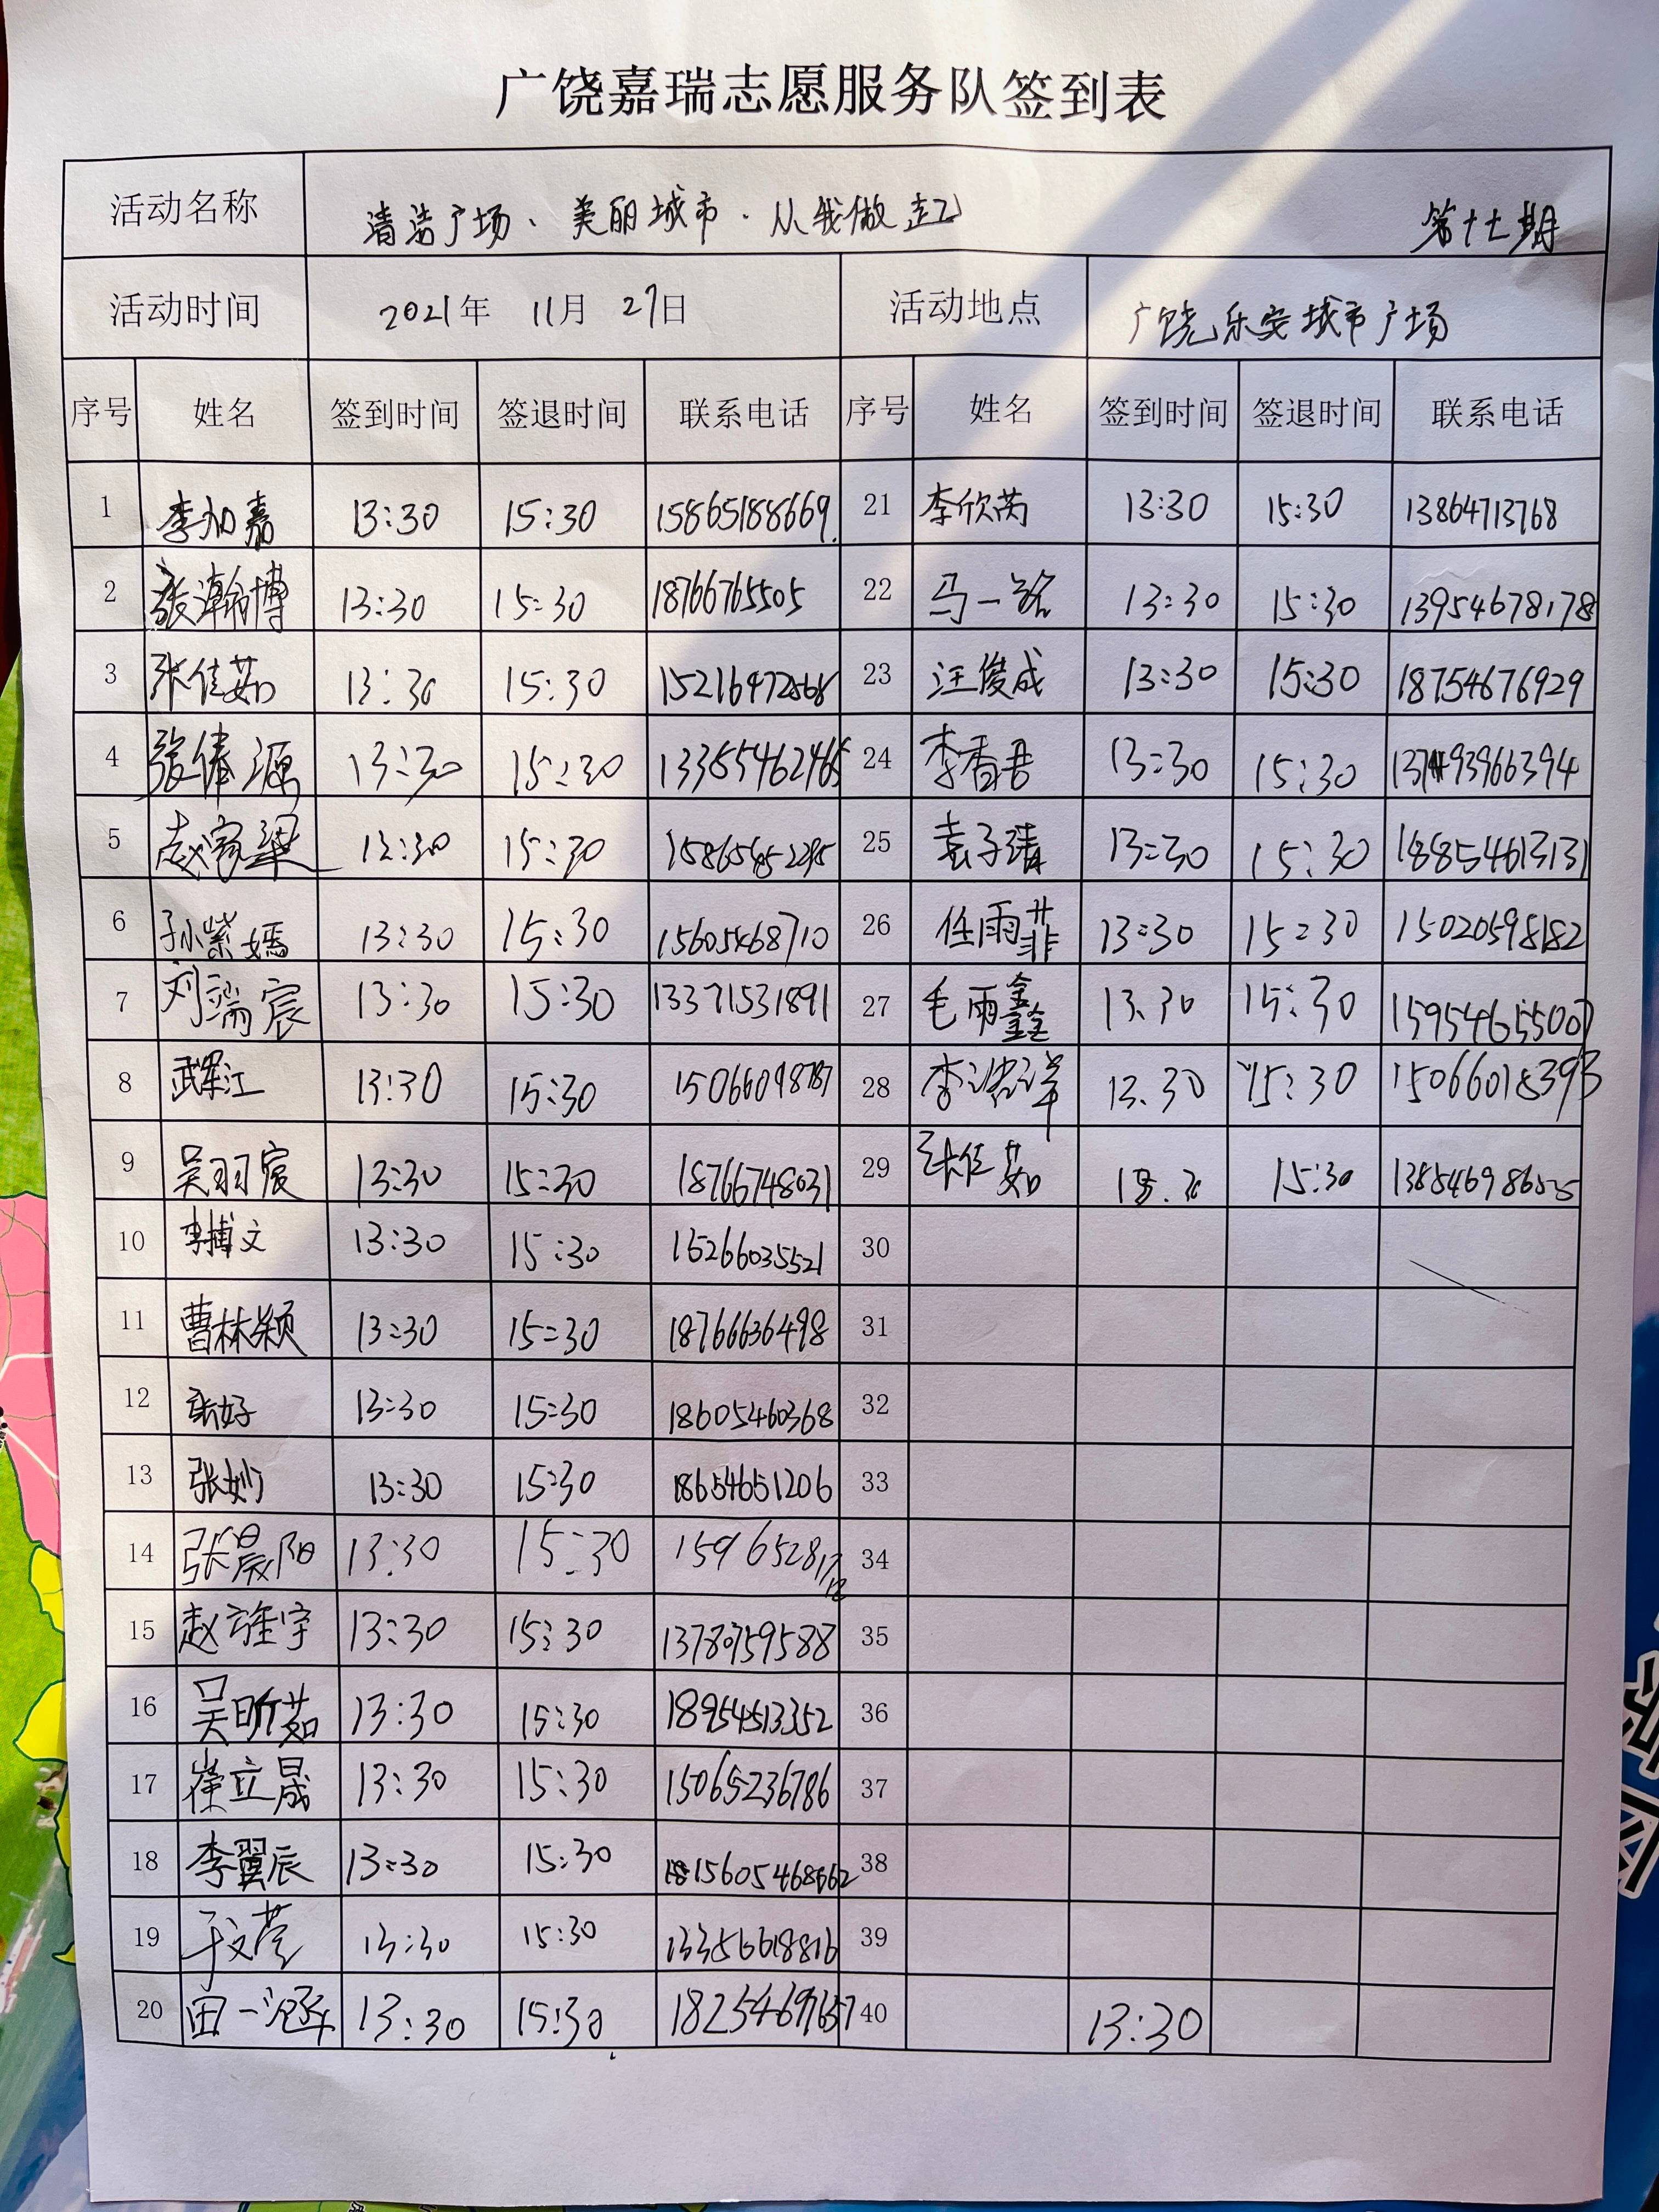 广饶嘉瑞志愿服务队签到表
活动名称 清洁广场、美丽城市、从我做起 第十七期
活动时间 2021年 11月 27日 活动地点 广饶乐安城市广场
序号 姓名 签到时间 签退时间 联系电话 序号 姓名 签到时间 签退时间 联系电话
1 李加嘉 13:30 15:30 15865188669 21 李欣芮 13:30 15:30 13864713768
2 张瀚博 13:30 15:30 18766765505 22 马一铭 13:30 15:30 13954678178
3 张佳茹 13:30 15:30 23 汪俊成 13:30 15:30 18754676929
4 13:30 15:30 13355462465 24 李香君 13:30 15:30
5 赵家梁 13:30 15:30 25 袁子靖 13:30 15:30 18854613131
6 孙紫嫣 13:30 15:30 15605468710 26 任雨菲 13:30 15:30 15020598182
7 刘端宸 13:30 15:30 13371531891 27 毛雨鑫 13:30 15:30 15954655007
8 13:30 15:30 15066098787 28 李浩洋 13:30 15:30 15066018393
9 吴羽宸 13:30 15:30 18766748031 29 张佳茹 15:30
10 李搏文 13:30 15:30 15266035521 30
11 曹林颖 13:30 15:30 18766636498 31
12 张好 13:30 15:30 18605460368 32
13 张妙 13:30 15:30 18654651206 33
14 张晨阳 13:30 15:30 34
15 13:30 15:30 13780759588 35
16 吴昕茹 13:30 15:30 18954513352 36
17 崔立晟 13:30 15:30 15065236786 37
18 李翼辰 13:30 15:30 15605468662 38
19 13:30 15:30 13356618816 39
20 田一涵 13:30 15:30 18254697657 40 13:30